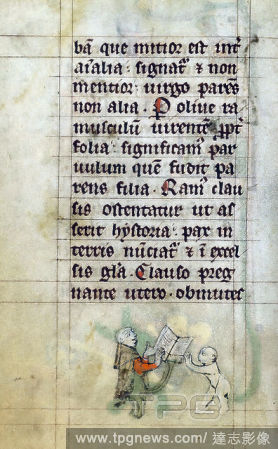 bā que mitior est int̄
aīalia : signat᷑ & non
mentior : uirgo parēs
non alia . P olive ra
musculū uirentē ppt̄
folia : significam᷑ par
uulum quē fudit pa
rens filia . Ram᷑ clau
sis ostentatur ut as
serit hystoria : pax in
terris nūciat᷑ & ī excel
sis gl̄a . Clauso preg
nante utero . obmutes
TPG
www.tpgnews.com/ 達志影像